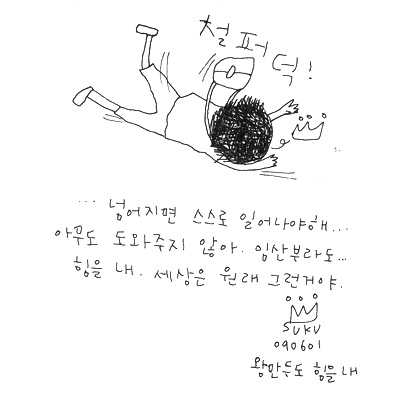 철퍼덕!
... 넘어지면 스스로 일어나야해...
아무도 도와주지 않아. 임산부라도...
힘을 내. 세상은 원래 그런거야.
SUKU
090601
왕만두도 힘을내